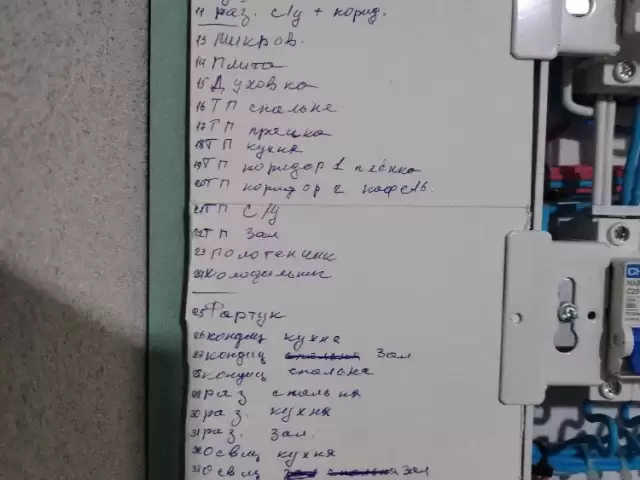 11 раз. с/у + корид.
13 микров.
14 Плита
15 Духовка
16 ТП спальне
17 ТП
18 ТП кухня
19 ТП коридор 1 плёнка
20 ТП коридор 2 кафель.
21 ТП С/У
22 ТП Зал
23 полотенчик
24 холодильник
25 Фартук
26 кондиц кухня
27 кондиц спальня Зал
28 кондиц спальна
29 раз спальня
30 раз. кухня
31 раз. Зал.
32 Освщ кухня
33 Освщ спальня Зал
CH
C25